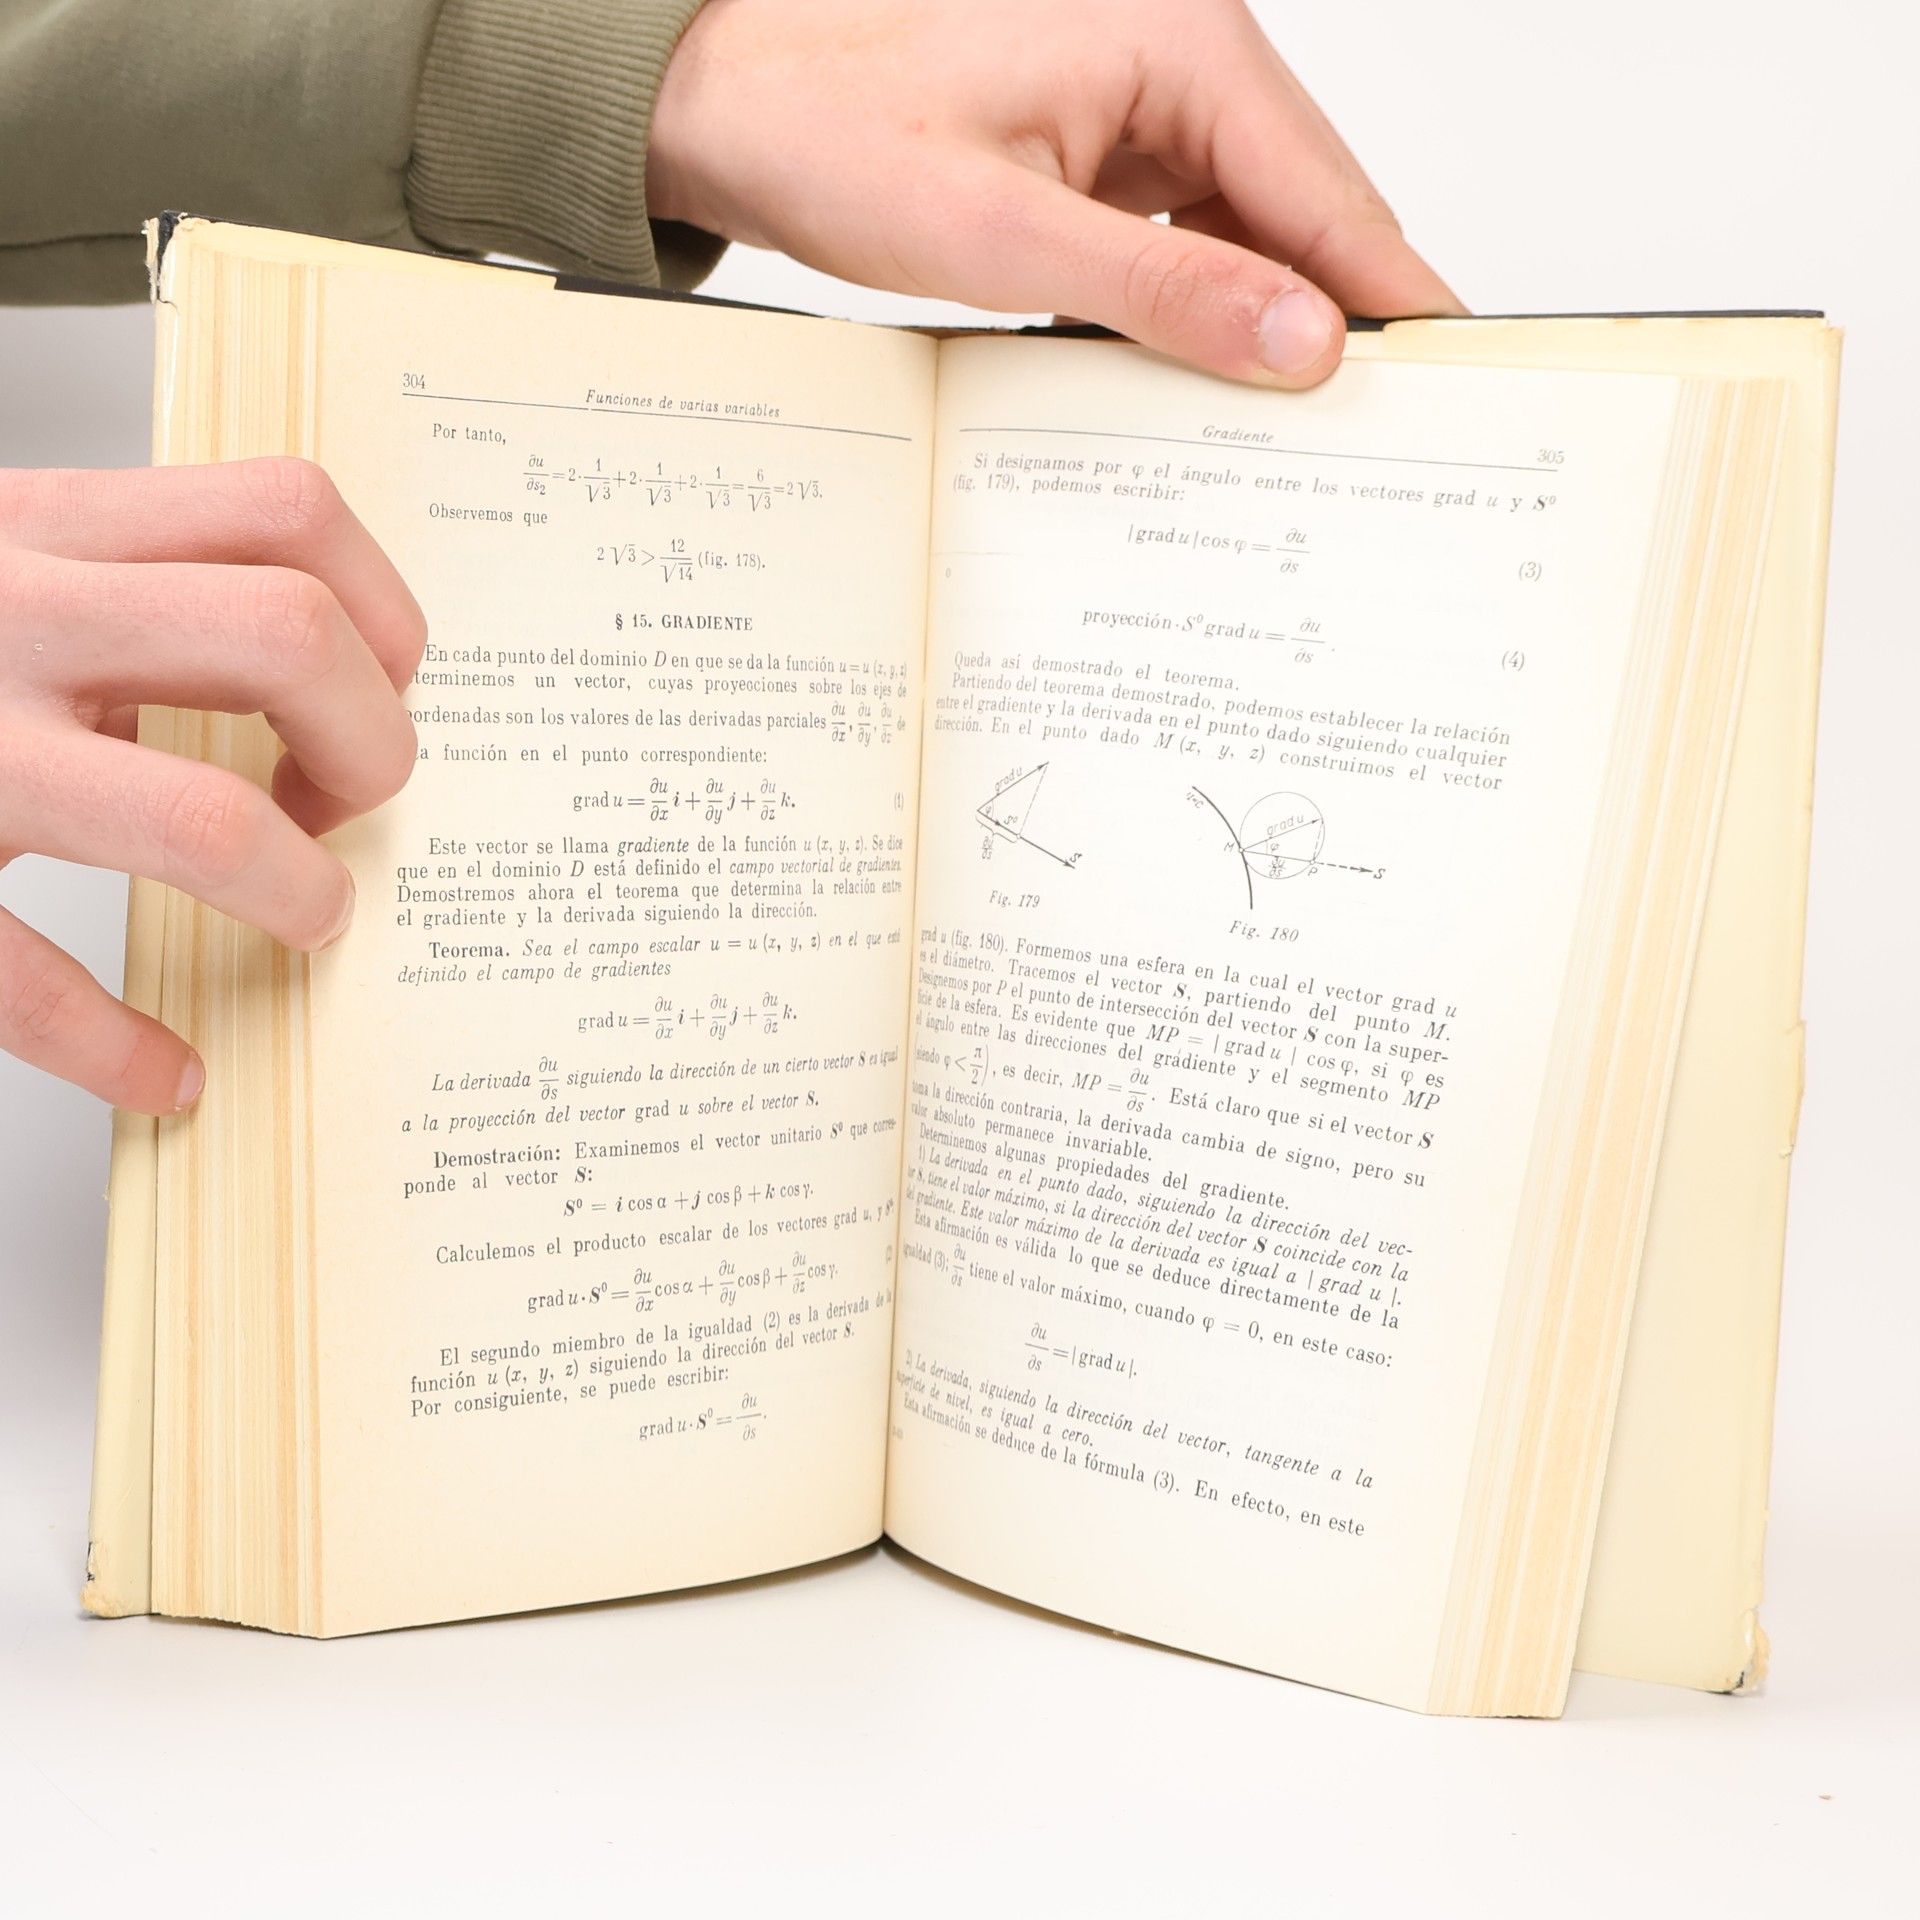 304
Funciones de varias variables
Por tanto,
∂u/∂s₂ = 2·1/√3 + 2·1/√3 + 2·1/√3 = 6/√3 = 2√3.
Observemos que
2√3 > 12/√14 (fig. 178).
§ 15. GRADIENTE
En cada punto del dominio D en que se da la función u = u (x, y, z)
terminemos un vector, cuyas proyecciones sobre los ejes de
ordenadas son los valores de las derivadas parciales ∂u/∂x, ∂u/∂y, ∂u/∂z de
a función en el punto correspondiente:
grad u = ∂u/∂x i + ∂u/∂y j + ∂u/∂z k. (1)
Este vector se llama gradiente de la función u (x, y, z). Se dice
que en el dominio D está definido el campo vectorial de gradientes.
Demostremos ahora el teorema que determina la relación entre
el gradiente y la derivada siguiendo la dirección.
Teorema. Sea el campo escalar u = u (x, y, z) en el que está
definido el campo de gradientes
grad u = ∂u/∂x i + ∂u/∂y j + ∂u/∂z k.
La derivada ∂u/∂s siguiendo la dirección de un cierto vector S es igual
a la proyección del vector grad u sobre el vector S.
Demostración: Examinemos el vector unitario S⁰ que corres-
ponde al vector S:
S⁰ = i cos α + j cos β + k cos γ.
Calculemos el producto escalar de los vectores grad u, y S⁰
grad u · S⁰ = ∂u/∂x cos α + ∂u/∂y cos β + ∂u/∂z cos γ. (2)
El segundo miembro de la igualdad (2) es la derivada de la
función u (x, y, z) siguiendo la dirección del vector S.
Por consiguiente, se puede escribir:
grad u · S⁰ = ∂u/∂s.
Gradiente
305
Si designamos por φ el ángulo entre los vectores grad u y S⁰
(fig. 179), podemos escribir:
|grad u| cos φ = ∂u/∂s (3)
o
proyección · S⁰ grad u = ∂u/∂s. (4)
Queda así demostrado el teorema.
Partiendo del teorema demostrado, podemos establecer la relación
entre el gradiente y la derivada en el punto dado siguiendo cualquier
dirección. En el punto dado M (x, y, z) construimos el vector
grad u
φ
S⁰
∂u/∂s
S
Fig. 179
u=c
M
grad u
φ
∂u/∂s
P
S
Fig. 180
grad u (fig. 180). Formemos una esfera en la cual el vector grad u
es el diámetro. Tracemos el vector S, partiendo del punto M.
Designemos por P el punto de intersección del vector S con la super-
ficie de la esfera. Es evidente que MP = | grad u | cos φ, si φ es
el ángulo entre las direcciones del gradiente y el segmento MP
(siendo φ < π/2), es decir, MP = ∂u/∂s. Está claro que si el vector S
toma la dirección contraria, la derivada cambia de signo, pero su
valor absoluto permanece invariable.
Determinemos algunas propiedades del gradiente.
1) La derivada en el punto dado, siguiendo la dirección del vec-
tor S, tiene el valor máximo, si la dirección del vector S coincide con la
del gradiente. Este valor máximo de la derivada es igual a | grad u |.
Esta afirmación es válida lo que se deduce directamente de la
igualdad (3); ∂u/∂s tiene el valor máximo, cuando φ = 0, en este caso:
∂u/∂s = | grad u |.
2) La derivada, siguiendo la dirección del vector, tangente a la
superficie de nivel, es igual a cero.
Esta afirmación se deduce de la fórmula (3). En efecto, en este